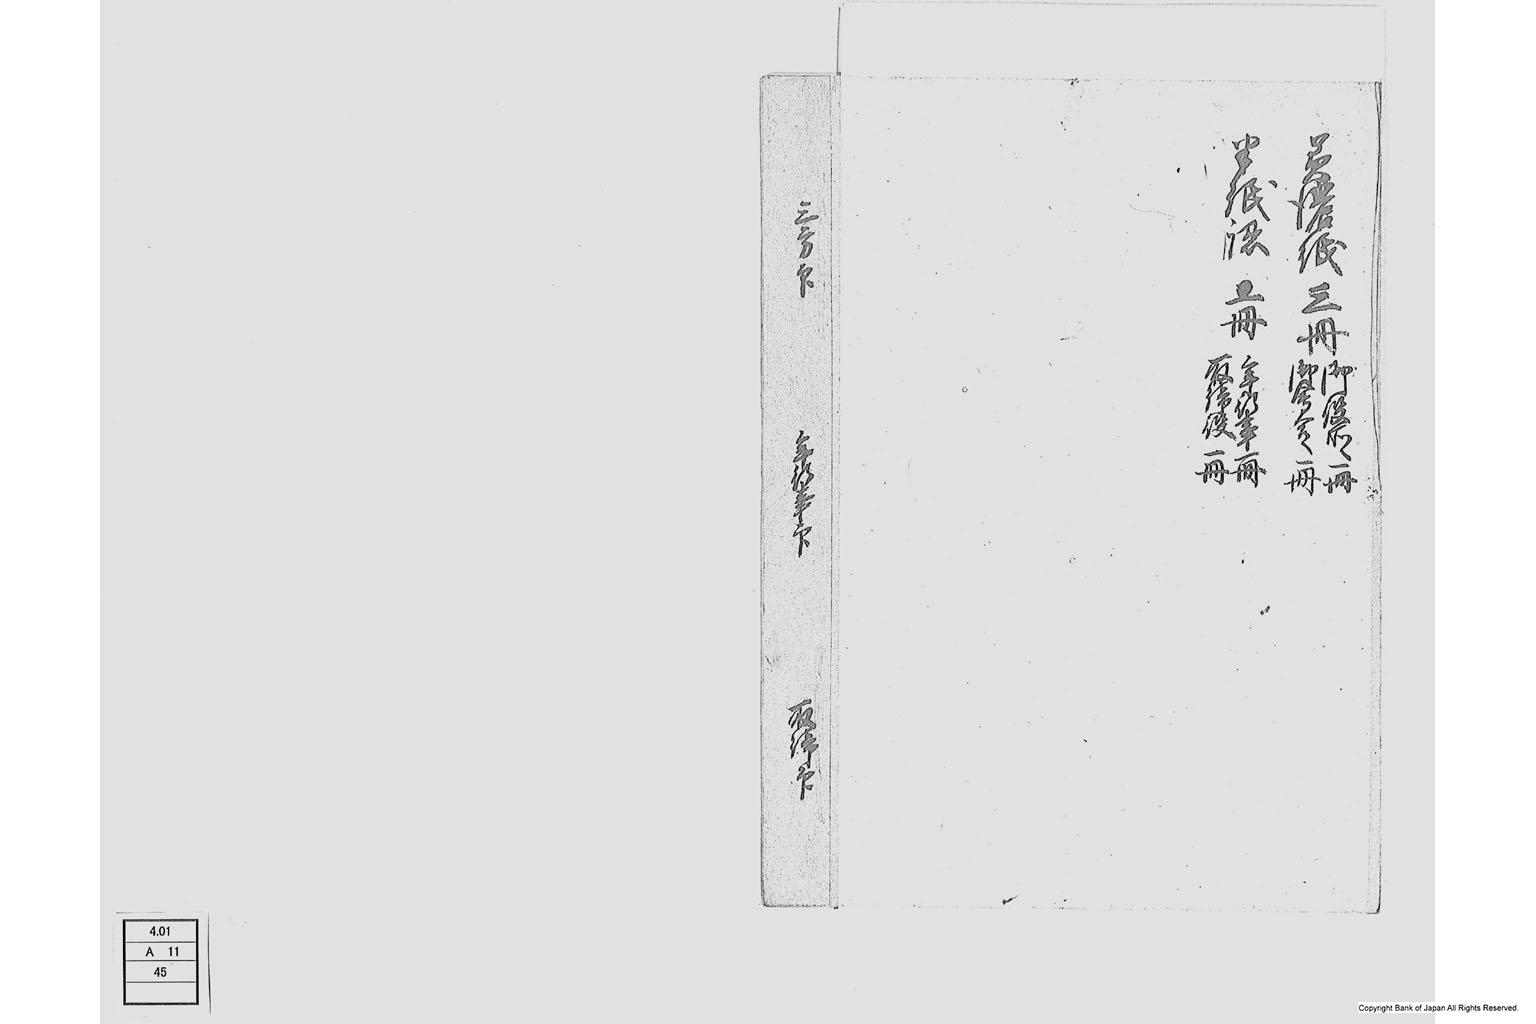 美濃紙 三冊
御役所へ一冊
御会へ一冊
半紙認 三冊
年行事一冊
取締役一冊
三方印
年行事印
取締印
4.01
A 11
45
Copyright Bank of Japan All Rights Reserved.